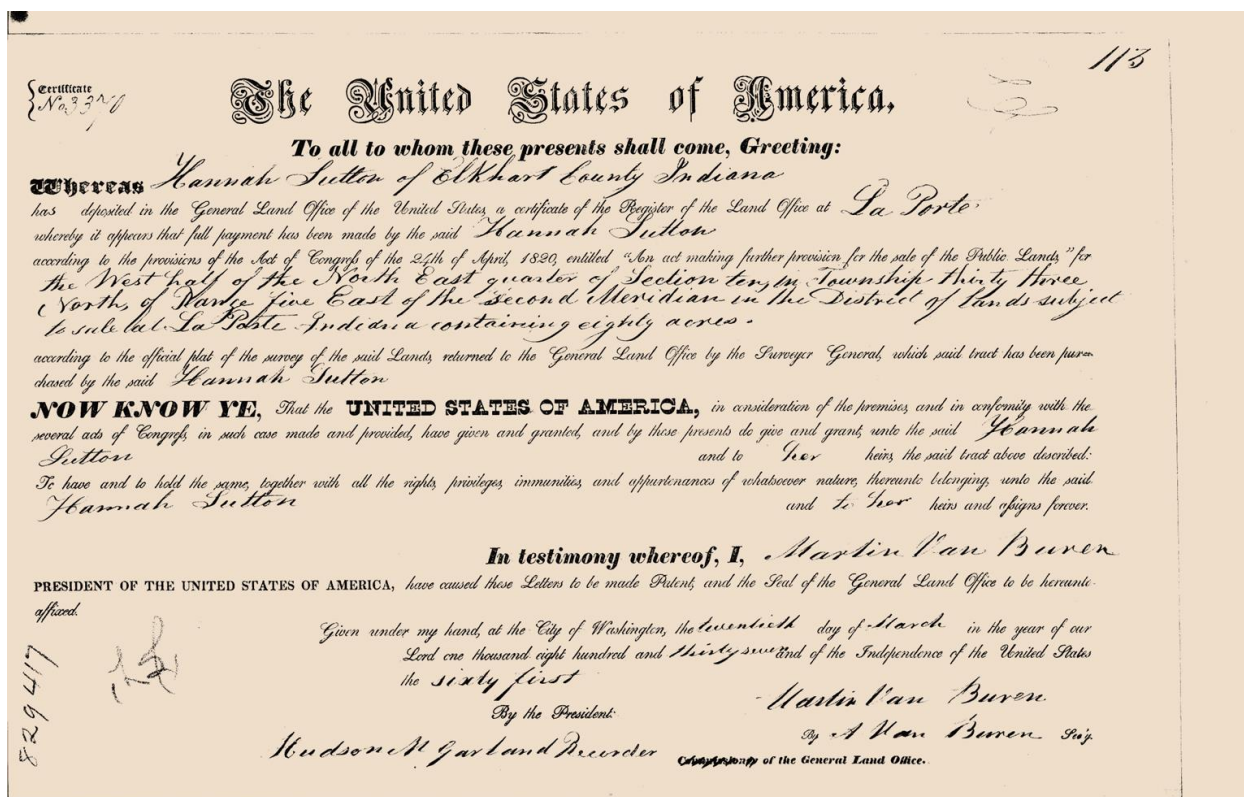 113
Certificate
No. 3370
The United States of America,
To all to whom these presents shall come, Greeting:
Whereas Hannah Sutton of Elkhart County Indiana
has deposited in the General Land Office of the United States, a certificate of the Register of the Land Office at La Porte
whereby it appears that full payment has been made by the said Hannah Sutton
according to the provisions of the Act of Congress of the 24th of April, 1820, entitled "An act making further provision for the sale of the Public Lands," for
the West half of the North East quarter of Section ten, in Township thirty three
North, of Range five East of the second Meridian in the District of Lands subject
to sale at La Porte Indiana containing eighty acres.
according to the official plat of the survey of the said Lands, returned to the General Land Office by the Surveyor General, which said tract has been pur-
chased by the said Hannah Sutton
NOW KNOW YE, That the UNITED STATES OF AMERICA, in consideration of the premises, and in conformity with the
several acts of Congress, in such case made and provided, have given and granted, and by these presents do give and grant, unto the said Hannah
Sutton and to her heirs, the said tract above described:
To have and to hold the same, together with all the rights, privileges, immunities, and appurtenances of whatsoever nature, thereunto belonging, unto the said
Hannah Sutton and to her heirs and assigns forever.
In testimony whereof, I, Martin Van Buren
PRESIDENT OF THE UNITED STATES OF AMERICA, have caused these Letters to be made Patent, and the Seal of the General Land Office to be hereunto
affixed.
Given under my hand, at the City of Washington, the twentieth day of March in the year of our
Lord one thousand eight hundred and thirty seven and of the Independence of the United States
the sixty first
By the President: Martin Van Buren
By A Van Buren Sec'y.
Hudson M Garland Recorder of the General Land Office.
82947